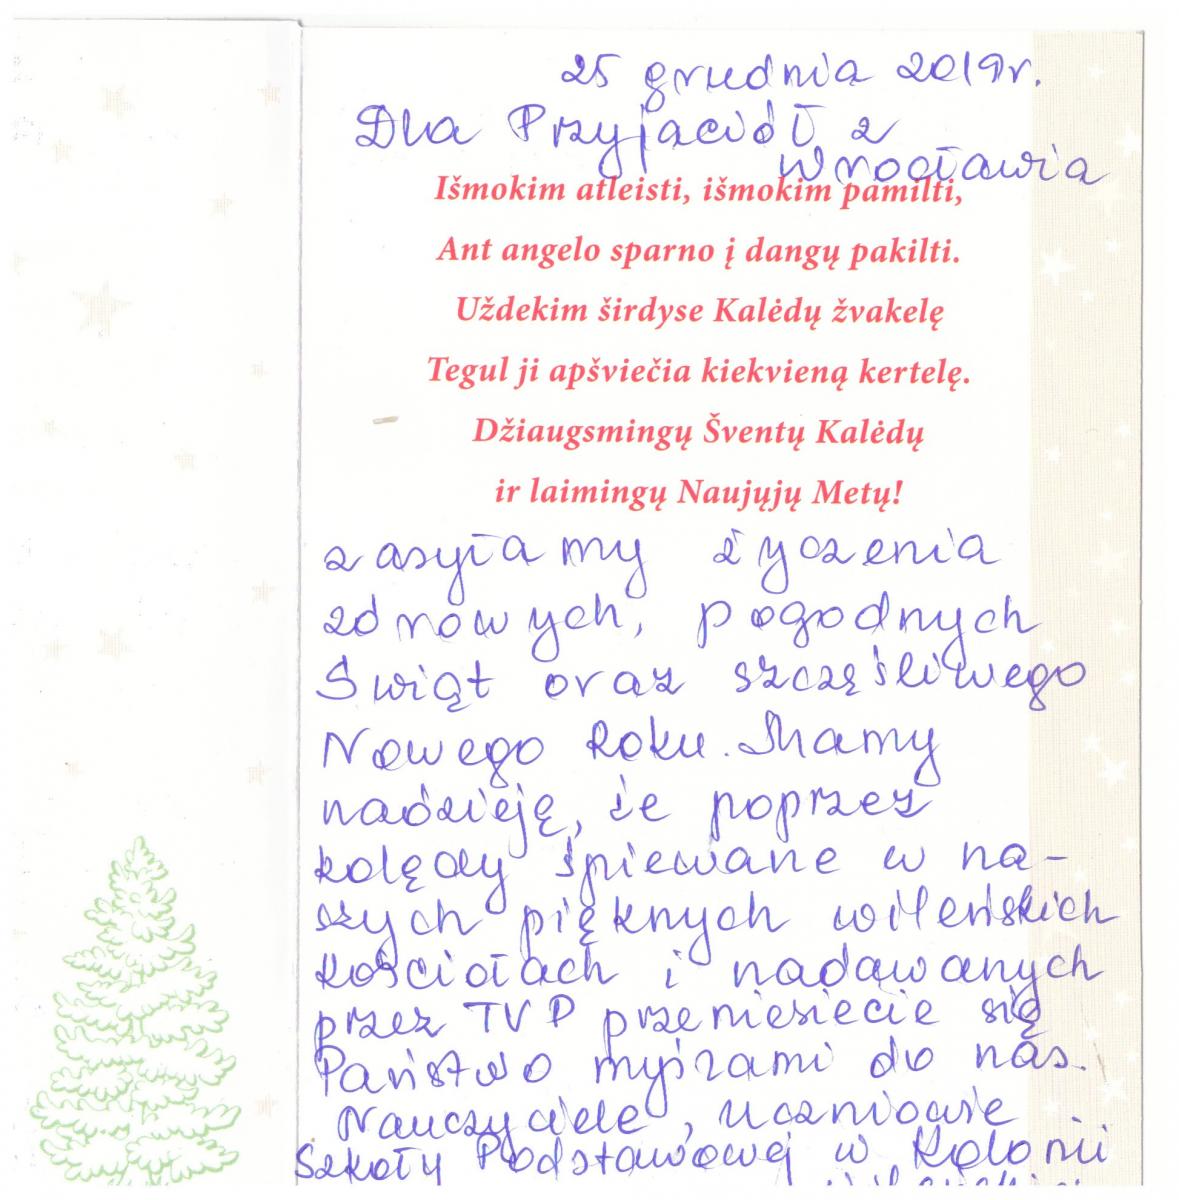 25 grudnia 2019r.
Dla Przyjaciół z
Wrocławia
Išmokim atleisti, išmokim pamilti,
Ant angelo sparno į dangų pakilti.
Uždekim širdyse Kalėdų žvakelę
Tegul ji apšviečia kiekvieną kertelę.
Džiaugsmingų Šventų Kalėdų
ir laimingų Naujųjų Metų!
zasyłamy życzenia
zdrowych, pogodnych
Świąt oraz szczęśliwego
Nowego Roku. Mamy
nadzieję, że poprzez
kolędy śpiewane w na-
szych pięknych wileńskich
kościołach i nadawanych
przez TVP przeniesiecie się
Państwo myślami do nas.
Nauczyciele, uczniowie
Szkoły Podstawowej w Kolonii